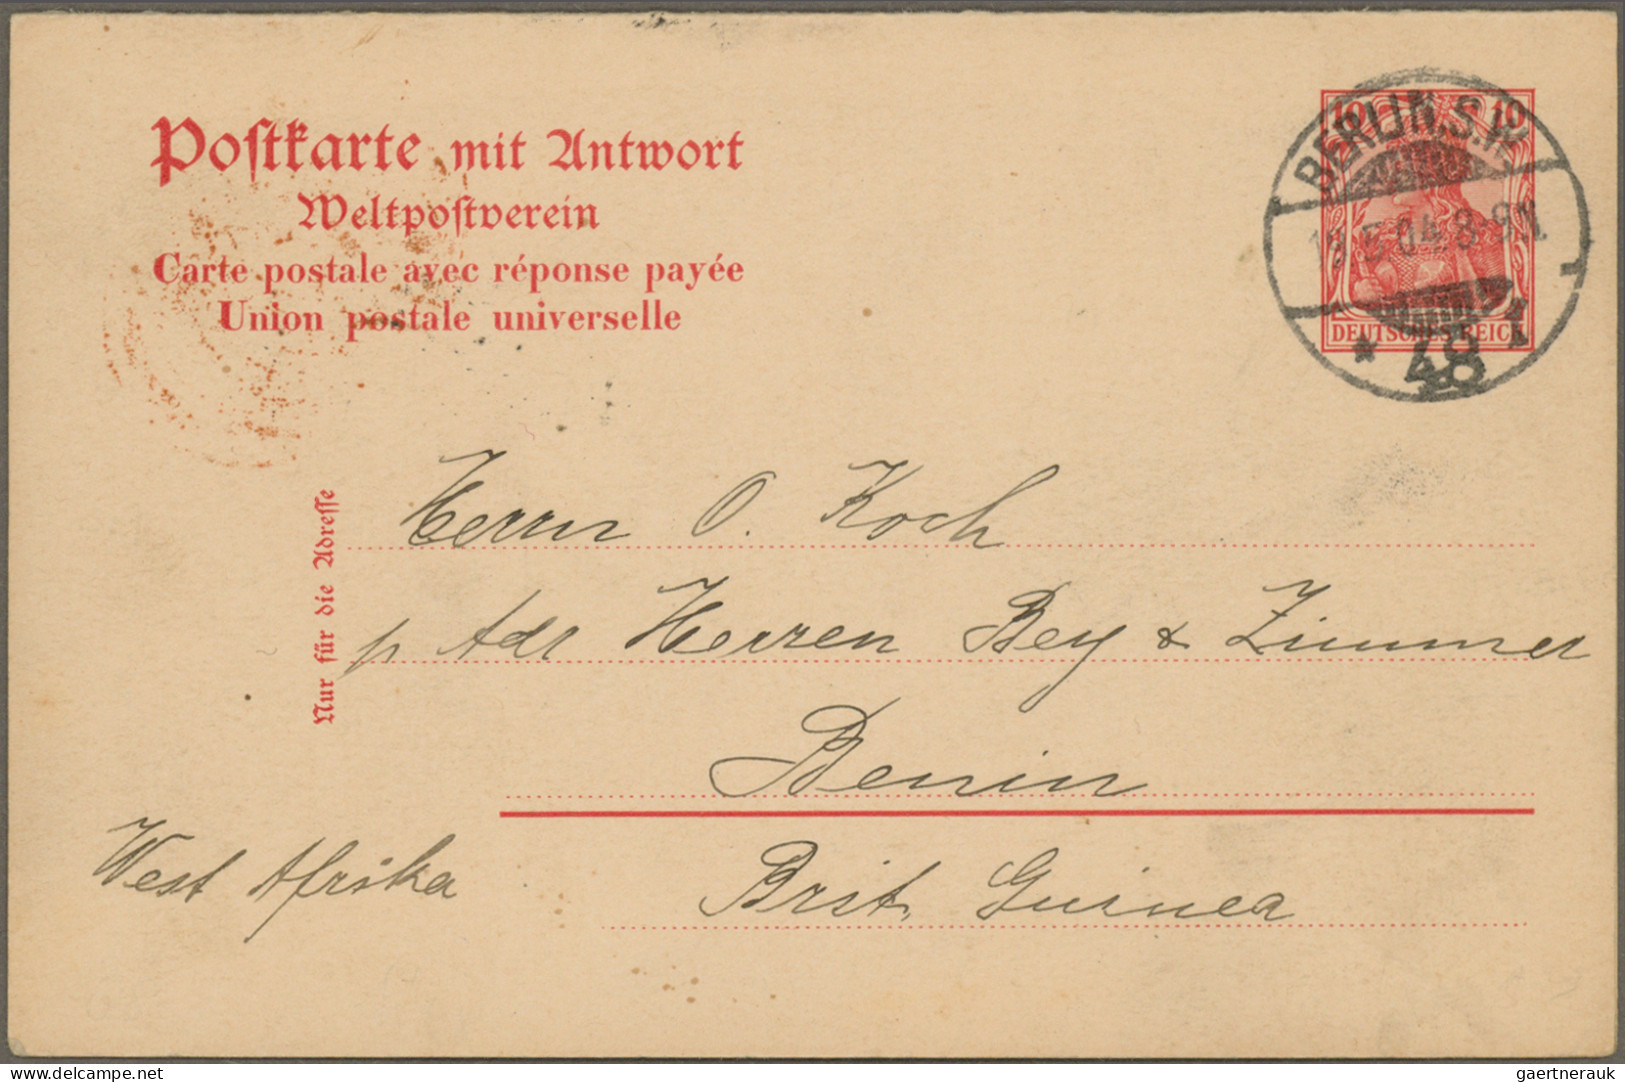 Postkarte mit Antwort
Weltpostverein
Carte postale avec réponse payée
Union postale universelle
10 10
DEUTSCHES REICH
BERLIN.S.W.
5.04. 8-9N
* 48
Nur für die Adresse
Herrn O. Koch
p Adr Herren Bey & Zimmer
Benin
West Afrika
Brit. Guinea
www.delcampe.net
gaertnerauk